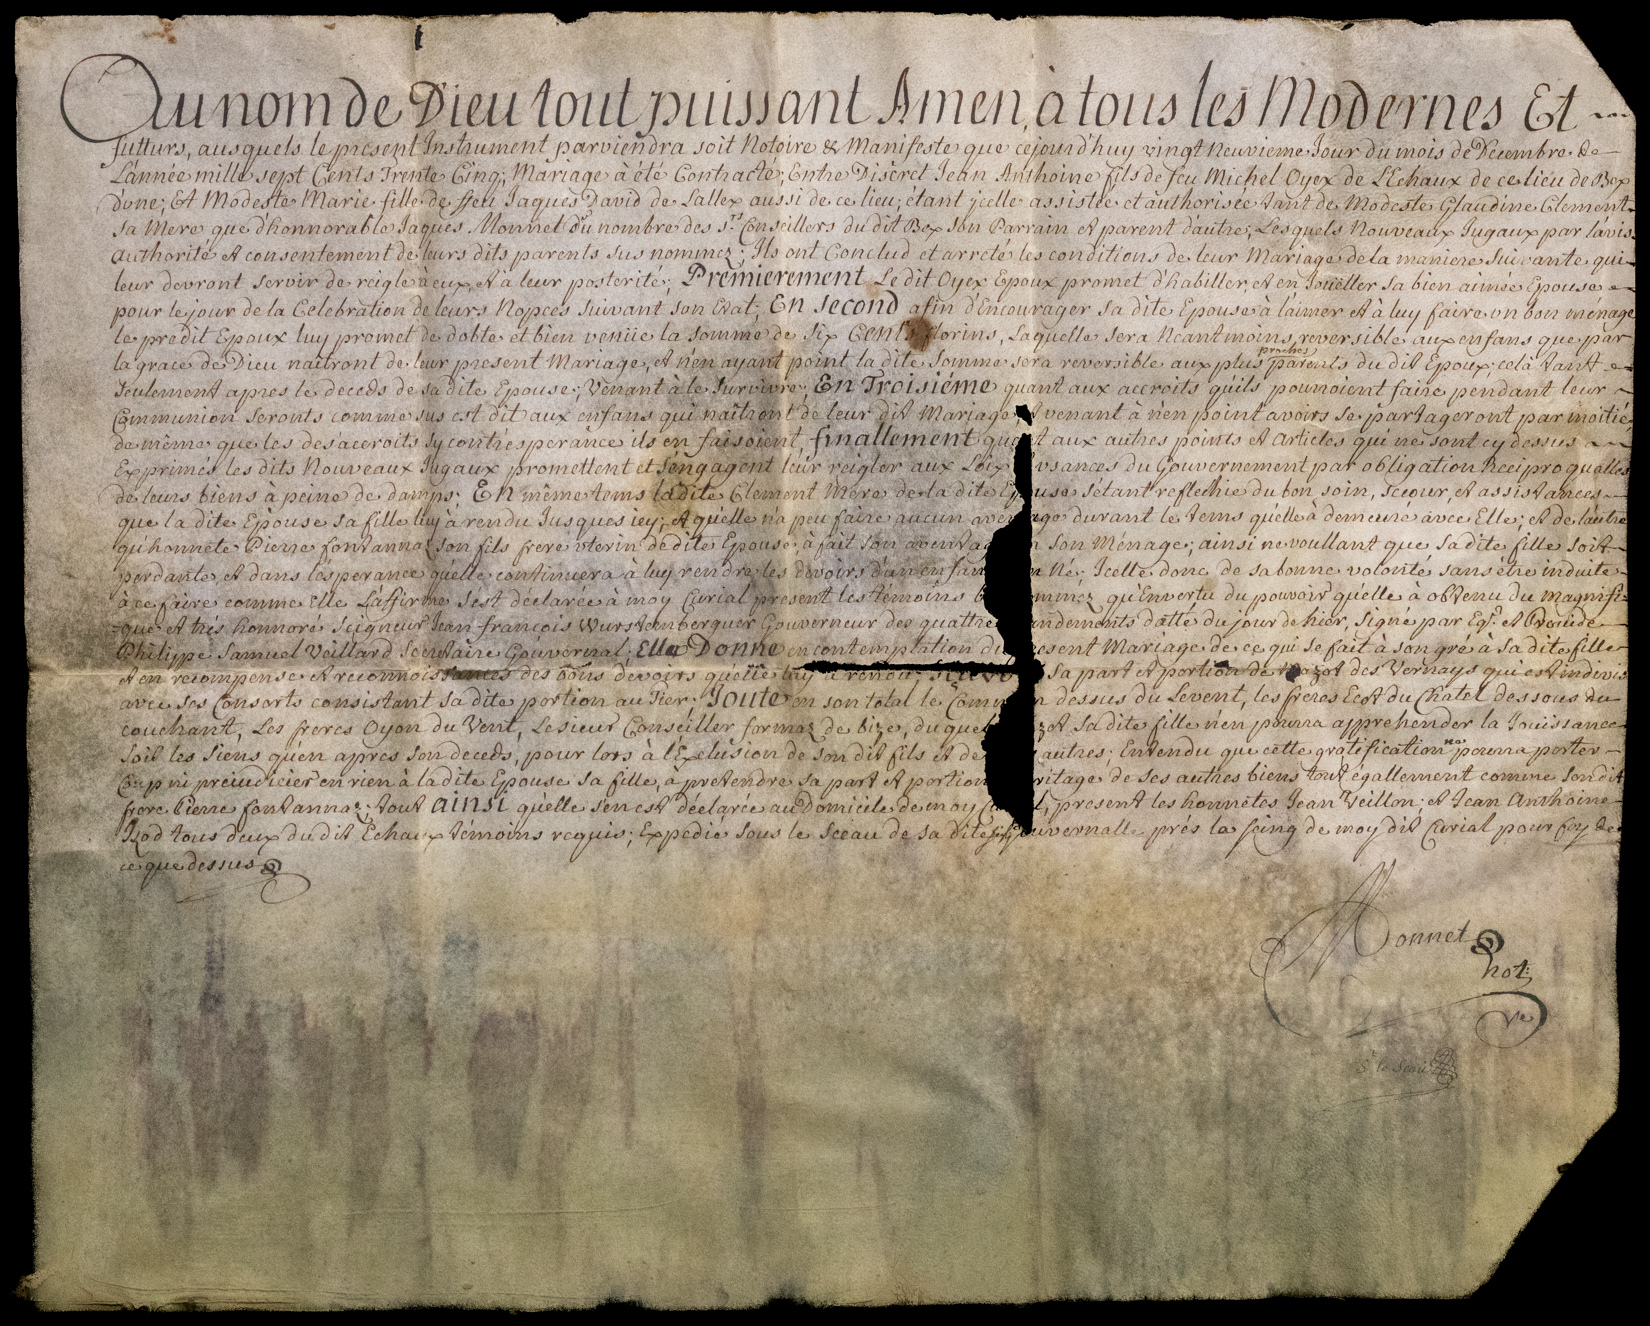 Au nom de Dieu tout puissant Amen, à tous les Modernes Et
futturs, ausquels le present Instrument parviendra soit Notoire & Manifeste que cejourd'huy vingt Neuvieme Jour du mois de Decembre de
L'année mille sept Cents Trente Cinq; Mariage à été Contracté; Entre Discret Jean Anthoine fils de feu Michel Oyex de L'Echaux de ce lieu de Bex
d'une; Et Modeste Marie fille de ffeu Jaques David de Lallex aussi de ce lieu; étant jcelle assistée et authorisée tant de Modeste Glaudine Clement
sa Mere que d'honnorable Jaques Monnet du nombre des s.rs Conseillers du dit Bex son Parrain et parent d'autre; Lesquels Nouveaux Jugaux par l'avis
authorité et consentement de leurs dits parents sus nommez; Ils ont Conclud et arreté les conditions de leur Mariage de la maniere Suivante qui
leur devront servir de reigle à eux, et à leur posterité; Premierement Le dit Oyex Epoux promet d'habiller, et en Joüeller sa bien aimée Epouse
pour le jour de la Celebration de leurs Nopces suivant son Etat; En second afin d'Encourager sa dite Epouse à l'aimer et à luy faire vn bon ménage
le predit Epoux luy promet de dobte et bien venüe la somme de six Cents florins, Laquelle sera Neantmoins reversible aux enfans que par
la grace de Dieu naitront de leur present Mariage, et n'en ayant point la dite somme sera reversible aux plus proches parents du dit Epoux; cela tant
seulement apres le deceds de sa dite Epouse; Venant à le survivre; En Troisiéme quant aux accroits qu'ils pourroient faire pendant leur
Communion seronts comme sus est dit aux enfans qui naitront de leur dit Mariage et venant à n'en point avoirs se partageront par moitié
de même que les desaccroits sy contre esperance ils en faisoient finallement quant aux autres points et articles qui ne sont cy dessus
Exprimés les dits Nouveaux Jugaux promettent et s'engagent leur reigler aux Loix vsances du Gouvernement par obligation Reciproquelles
de leurs biens à peine de damps; En même tems la dite Clement Mere de la dite Epouse s'étant reflechie du bon soin, secour, et assistances
que la dite Epouse sa fille luy à rendu Jusques icy; et qu'elle n'a peu faire aucun avantage durant le tems qu'elle à demeuré avec Elle; et de l'autre
qu'honnete Pierre fontannaz son fils frere vterin de dite Epouse à fait son aventage son Ménage; ainsi ne voullant que sa dite fille soit
perdante, et dans l'esperance qu'elle continuera à luy rendre les devoirs d'un enfant Né; Jcelle donc de sa bonne volonté sans etre induite
à ce faire comme Elle l'affirme s'est déclarée à moy Curial present les témoins nommez qu'En vertu du pouvoir qu'elle à obtenu du Magnifi-
que et trés honnoré Seigneur Jean François Wurstemberguer Gouverneur des quattre mandements datté du jour de hier, signé par Eg.e et Prudde
Philippe Samuel Veillard Secretaire Gouvernal; Elle Donne en contemplation du present Mariage de ce qui se fait à son gré à sa dite fille
et en recompense et reconnoissances des bons devoirs qu'elle luy à rendu; sa part et portion de Mazot des Vernays qui est indivis
avec ses Consorts consistant sa dite portion au Tier. Joute en son total le Commun dessus du Levent, les freres Ecot du Chatel dessous du
couchant, Les freres Oyon du Vent, Le sieur Conseiller formaz de bize, du quel Mazot sa dite fille n'en pourra apprehender la Jouïssance
soit les siens qu'en apres son deceds, pour lors à l'Exclusion de son dit fils et de autres; Entendu que cette gratification ne pourra porter
ni prejudicier en rien à la dite Epouse sa fille, à pretendre sa part et portion heritage de ses autres biens tout égallement comme son dit
frere Pierre fontannaz; tout ainsi qu'elle s'en est déclarée au Domicile de moy Curial, present les honnétes Jean Veillon; et Jean Anthoine
Jsod tous deux du dit Echaux témoins requis; Expedié sous le Sceau de sa dite Gouvernalle prés la seing de moy dit Curial pour foy de
ce que dessus
Monnet
not: